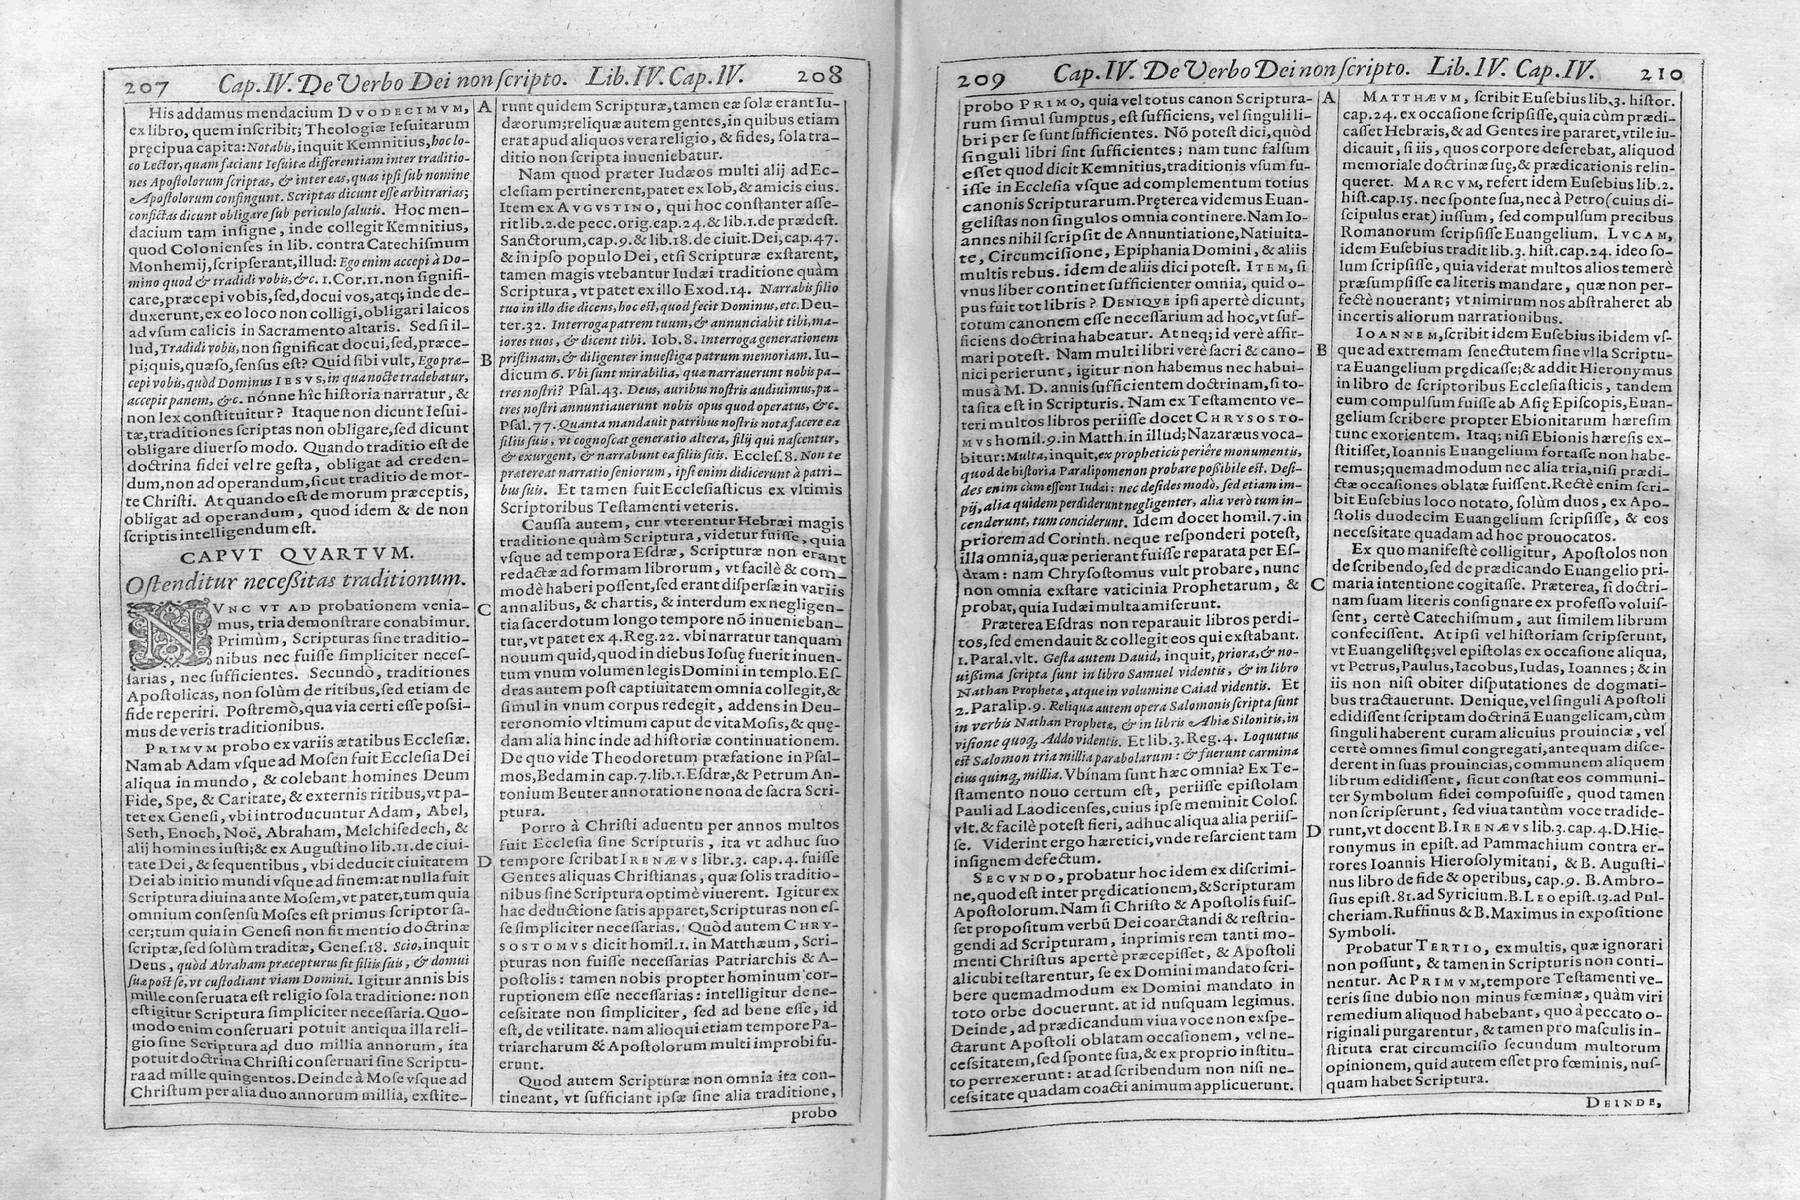 207 Cap. IV. De Verbo Dei non scripto. Lib. IV. Cap. IV. 208
His addamus mendacium DVODECIMVM,
ex libro, quem inscribit; Theologiæ Iesuitarum
pręcipua capita: Notabis, inquit Kemnitius, hoc lo-
co Lector, quam faciant Iesuitæ differentiam inter traditio-
nes Apostolorum scriptas, & inter eas, quas ipsi sub nomine
Apostolorum confingunt. Scriptas dicunt esse arbitrarias;
confictas dicunt obligare sub periculo salutis. Hoc men-
dacium tam insigne, inde collegit Kemnitius,
quod Colonienses in lib. contra Catechismum
Monhemij, scripserant, illud: Ego enim accepi à Do-
mino quod & tradidi vobis, &c. 1. Cor. 11. non signifi-
care, præcepi vobis, sed, docui vos, atq; inde de-
duxerunt, ex eo loco non colligi, obligari laicos
ad vsum calicis in Sacramento altaris. Sed si il-
lud, Tradidi vobis, non significat docui, sed, præce-
pi; quis, quæso, sensus est? Quid sibi vult, Ego præ-
cepi vobis, quòd Dominus IESVS, in qua nocte tradebatur,
accepit panem, &c. nónne hîc historia narratur, &
non lex constituitur? Itaque non dicunt Iesui-
tæ, traditiones scriptas non obligare, sed dicunt
obligare diuerso modo. Quando traditio est de
doctrina fidei vel re gesta, obligat ad creden-
dum, non ad operandum, sicut traditio de mor-
te Christi. At quando est de morum præceptis,
obligat ad operandum, quod idem & de non
scriptis intelligendum est.
CAPVT QVARTVM.
Ostenditur necessitas traditionum.
NVNC VT AD probationem venia-
mus, tria demonstrare conabimur.
Primùm, Scripturas sine traditio-
nibus nec fuisse simpliciter neces-
sarias, nec sufficientes. Secundò, traditiones
Apostolicas, non solùm de ritibus, sed etiam de
fide reperiri. Postremò, qua via certi esse possi-
mus de veris traditionibus.
PRIMVM probo ex variis ætatibus Ecclesiæ.
Nam ab Adam vsque ad Mosen fuit Ecclesia Dei
aliqua in mundo, & colebant homines Deum
Fide, Spe, & Caritate, & externis ritibus, vt pa-
tet ex Genesi, vbi introducuntur Adam, Abel,
Seth, Enoch, Noë, Abraham, Melchisedech, &
alij homines iusti; & ex Augustino lib. 11. de ciui-
tate Dei, & sequentibus, vbi deducit ciuitatem
Dei ab initio mundi vsque ad finem: at nulla fuit
Scriptura diuina ante Mosem, vt patet, tum quia
omnium consensu Moses est primus scriptor sa-
cer; tum quia in Genesi non fit mentio doctrinæ
scriptæ, sed solùm traditæ, Genes. 18. Scio, inquit
Deus, quòd Abraham præcepturus sit filiis suis, & domui
suæ post se, vt custodiant viam Domini. Igitur annis bis
mille conseruata est religio sola traditione: non
est igitur Scriptura simpliciter necessaria. Quo-
modo enim conseruari potuit antiqua illa reli-
gio sine Scriptura ad duo millia annorum, ita
potuit doctrina Christi conseruari sine Scriptu-
ra ad mille quingentos. Deinde à Mose vsque ad
Christum per alia duo annorum millia, exstite-
A
B
C
D
runt quidem Scripturæ, tamen eæ solæ erant Iu-
dæorum; reliquæ autem gentes, in quibus etiam
erat apud aliquos vera religio, & fides, sola tra-
ditione non scripta inueniebatur.
Nam quod præter Iudæos multi alij ad Ec-
clesiam pertinerent, patet ex Iob, & amicis eius.
Item ex AVGVSTINO, qui hoc constanter asse-
rit lib. 2. de pecc. orig. cap. 24. & lib. 1. de prædest.
Sanctorum, cap. 9. & lib. 18. de ciuit. Dei, cap. 47.
& in ipso populo Dei, etsi Scripturæ exstarent,
tamen magis vtebantur Iudæi traditione quàm
Scriptura, vt patet ex illo Exod. 14. Narrabis filio
tuo in illo die dicens, hoc est, quod fecit Dominus, etc. Deu-
ter. 32. Interroga patrem tuum, & annunciabit tibi, ma-
iores tuos, & dicent tibi. Iob. 8. Interroga generationem
pristinam, & diligenter inuestiga patrum memoriam. Iu-
dicum 6. Vbi sunt mirabilia, quæ narrauerunt nobis pa-
tres nostri? Psal. 43. Deus, auribus nostris audiuimus, pa-
tres nostri annuntiauerunt nobis opus quod operatus, &c.
Psal. 77. Quanta mandauit patribus nostris nota facere ea
filiis suis, vt cognoscat generatio altera, filij qui nascentur,
& exurgent, & narrabunt ea filiis suis. Eccles. 8. Non te
prætereat narratio seniorum, ipsi enim didicerunt à patri-
bus suis. Et tamen fuit Ecclesiasticus ex vltimis
Scriptoribus Testamenti veteris.
Caussa autem, cur vterentur Hebræi magis
traditione quàm Scriptura, videtur fuisse, quia
vsque ad tempora Esdræ, Scripturæ non erant
redactæ ad formam librorum, vt facilè & com-
modè haberi possent, sed erant dispersæ in variis
annalibus, & chartis, & interdum ex negligen-
tia sacerdotum longo tempore nō inuenieban-
tur, vt patet ex 4. Reg. 22. vbi narratur tanquam
nouum quid, quod in diebus Iosuę fuerit inuen-
tum vnum volumen legis Domini in templo. Es-
dras autem post captiuitatem omnia collegit, &
simul in vnum corpus redegit, addens in Deu-
teronomio vltimum caput de vita Mosis, & quę-
dam alia hinc inde ad historiæ continuationem.
De quo vide Theodoretum præfatione in Psal-
mos, Bedam in cap. 7. lib. 1. Esdræ, & Petrum An-
tonium Beuter annotatione nona de sacra Scri-
ptura.
Porro à Christi aduentu per annos multos
fuit Ecclesia sine Scripturis, ita vt adhuc suo
tempore scribat IRENÆVS libr. 3. cap. 4. fuisse
Gentes aliquas Christianas, quæ solis traditio-
nibus sine Scriptura optimè viuerent. Igitur ex
hac deductione satis apparet, Scripturas non es-
se simpliciter necessarias. Quòd autem CHRY-
SOSTOMVS dicit homil. 1. in Matthæum, Scri-
pturas non fuisse necessarias Patriarchis & A-
postolis: tamen nobis propter hominum cor-
ruptionem esse necessarias: intelligitur de ne-
cessitate non simpliciter, sed ad bene esse, id
est, de vtilitate. nam alioqui etiam tempore Pa-
triarcharum & Apostolorum multi improbi fu-
erunt.
Quod autem Scripturæ non omnia ita con-
tineant, vt sufficiant ipsæ sine alia traditione,
probo
209 Cap. IV. De Verbo Dei non scripto. Lib. IV. Cap. IV. 210
probo PRIMO, quia vel totus canon Scriptura-
rum simul sumptus, est sufficiens, vel singuli li-
bri per se sunt sufficientes. Nō potest dici, quòd
singuli libri sint sufficientes; nam tunc falsum
esset quod dicit Kemnitius, traditionis vsum fu-
isse in Ecclesia vsque ad complementum totius
canonis Scripturarum. Pręterea videmus Euan-
gelistas non singulos omnia continere. Nam Io-
annes nihil scripsit de Annuntiatione, Natiuita-
te, Circumcisione, Epiphania Domini, & aliis
multis rebus. idem de aliis dici potest. ITEM, si
vnus liber continet sufficienter omnia, quid o-
pus fuit tot libris? DENIQVE ipsi apertè dicunt,
totum canonem esse necessarium ad hoc, vt suf-
ficiens doctrina habeatur. At neq; id verè affir-
mari potest. Nam multi libri verè sacri & cano-
nici perierunt, igitur non habemus nec habui-
mus à M. D. annis sufficientem doctrinam, si to-
ta sita est in Scripturis. Nam ex Testamento ve-
teri multos libros periisse docet CHRYSOSTO-
MVS homil. 9. in Matth. in illud; Nazaræus voca-
bitur: Multa, inquit, ex propheticis periêre monumentis,
quod de historia Paralipomenon probare possibile est. Desi-
des enim cùm essent Iudæi: nec desides modò, sed etiam im-
pij, alia quidem perdiderunt negligenter, alia verò tum in-
cenderunt, tum conciderunt. Idem docet homil. 7. in
priorem ad Corinth. neque responderi potest,
illa omnia, quæ perierant fuisse reparata per Es-
dram: nam Chrysostomus vult probare, nunc
non omnia exstare vaticinia Prophetarum, &
probat, quia Iudæi multa amiserunt.
Præterea Esdras non reparauit libros perdi-
tos, sed emendauit & collegit eos qui exstabant.
1. Paral. vlt. Gesta autem Dauid, inquit, priora, & no-
uissima scripta sunt in libro Samuel videntis, & in libro
Nathan Prophetæ, atque in volumine Caiad videntis. Et
2. Paralip. 9. Reliqua autem opera Salomonis scripta sunt
in verbis Nathan Prophetæ, & in libris Ahiæ Silonitis, in
visione quoq, Addo videntis. Et lib. 3. Reg. 4. Loquutus
est Salomon tria millia parabolarum: & fuerunt carmina
eius quinq, millia. Vbínam sunt hæc omnia? Ex Te-
stamento nouo certum est, periisse epistolam
Pauli ad Laodicenses, cuius ipse meminit Colos.
vlt. & facilè potest fieri, adhuc aliqua alia periis-
se. Viderint ergo hæretici, vnde resarcient tam
insignem defectum.
SECVNDO, probatur hoc idem ex discrimi-
ne, quod est inter prędicationem, & Scripturam
Apostolorum. Nam si Christo & Apostolis fuis-
set propositum verbū Dei coarctandi & restrin-
gendi ad Scripturam, inprimis rem tanti mo-
menti Christus apertè præcepisset, & Apostoli
alicubi testarentur, se ex Domini mandato scri-
bere quemadmodum ex Domini mandato in
toto orbe docuerunt. at id nusquam legimus.
Deinde, ad prædicandum viua voce non exspe-
ctarunt Apostoli oblatam occasionem, vel ne-
cessitatem, sed sponte sua, & ex proprio institu-
to perrexerunt: at ad scribendum non nisi ne-
cessitate quadam coacti animum applicuerunt.
A
B
C
D
MATTHÆVM, scribit Eusebius lib. 3. histor.
cap. 24. ex occasione scripsisse, quia cùm prædi-
casset Hebræis, & ad Gentes ire pararet, vtile iu-
dicauit, si iis, quos corpore deserebat, aliquod
memoriale doctrinæ suę, & prædicationis relin-
queret. MARCVM, refert idem Eusebius lib. 2.
hist. cap. 15. nec sponte sua, nec à Petro (cuius di-
scipulus erat) iussum, sed compulsum precibus
Romanorum scripsisse Euangelium. LVCAM,
idem Eusebius tradit lib. 3. hist. cap. 24. ideo so-
lum scripsisse, quia viderat multos alios temerè
præsumpsisse ea literis mandare, quæ non per-
fectè nouerant; vt nimirum nos abstraheret ab
incertis aliorum narrationibus.
IOANNEM, scribit idem Eusebius ibidem vs-
que ad extremam senectutem sine vlla Scriptu-
ra Euangelium prędicasse; & addit Hieronymus
in libro de scriptoribus Ecclesiasticis, tandem
eum compulsum fuisse ab Asię Episcopis, Euan-
gelium scribere propter Ebionitarum hæresim
tunc exorientem. Itaq; nisi Ebionis hæresis ex-
stitisset, Ioannis Euangelium fortasse non habe-
remus; quemadmodum nec alia tria, nisi prædi-
ctæ occasiones oblatæ fuissent. Rectè enim scri-
bit Eusebius loco notato, solùm duos, ex Apo-
stolis duodecim Euangelium scripsisse, & eos
necessitate quadam ad hoc prouocatos.
Ex quo manifestè colligitur, Apostolos non
de scribendo, sed de prædicando Euangelio pri-
maria intentione cogitasse. Præterea, si doctri-
nam suam literis consignare ex professo voluis-
sent, certè Catechismum, aut similem librum
confecissent. At ipsi vel historiam scripserunt,
vt Euangelistę; vel epistolas ex occasione aliqua,
vt Petrus, Paulus, Iacobus, Iudas, Ioannes; & in
iis non nisi obiter disputationes de dogmati-
bus tractauerunt. Denique, vel singuli Apostoli
edidissent scriptam doctrinā Euangelicam, cùm
singuli haberent curam alicuius prouinciæ, vel
certè omnes simul congregati, antequam disce-
derent in suas prouincias, communem aliquem
librum edidissent, sicut constat eos communi-
ter Symbolum fidei composuisse, quod tamen
non scripserunt, sed viua tantùm voce tradide-
runt, vt docent B. IRENÆVS lib. 3. cap. 4. D. Hie-
ronymus in epist. ad Pammachium contra er-
rores Ioannis Hierosolymitani, & B. Augusti-
nus libro de fide & operibus, cap. 9. B. Ambro-
sius epist. 81. ad Syricium. B. LEO epist. 13. ad Pul-
cheriam. Ruffinus & B. Maximus in expositione
Symboli.
Probatur TERTIO, ex multis, quæ ignorari
non possunt, & tamen in Scripturis non conti-
nentur. Ac PRIMVM, tempore Testamenti ve-
teris sine dubio non minus fœminæ, quàm viri
remedium aliquod habebant, quo à peccato o-
riginali purgarentur, & tamen pro masculis in-
stituta erat circumcisio secundum multorum
opinionem, quid autem esset pro fœminis, nus-
quam habet Scriptura.
DEINDE,